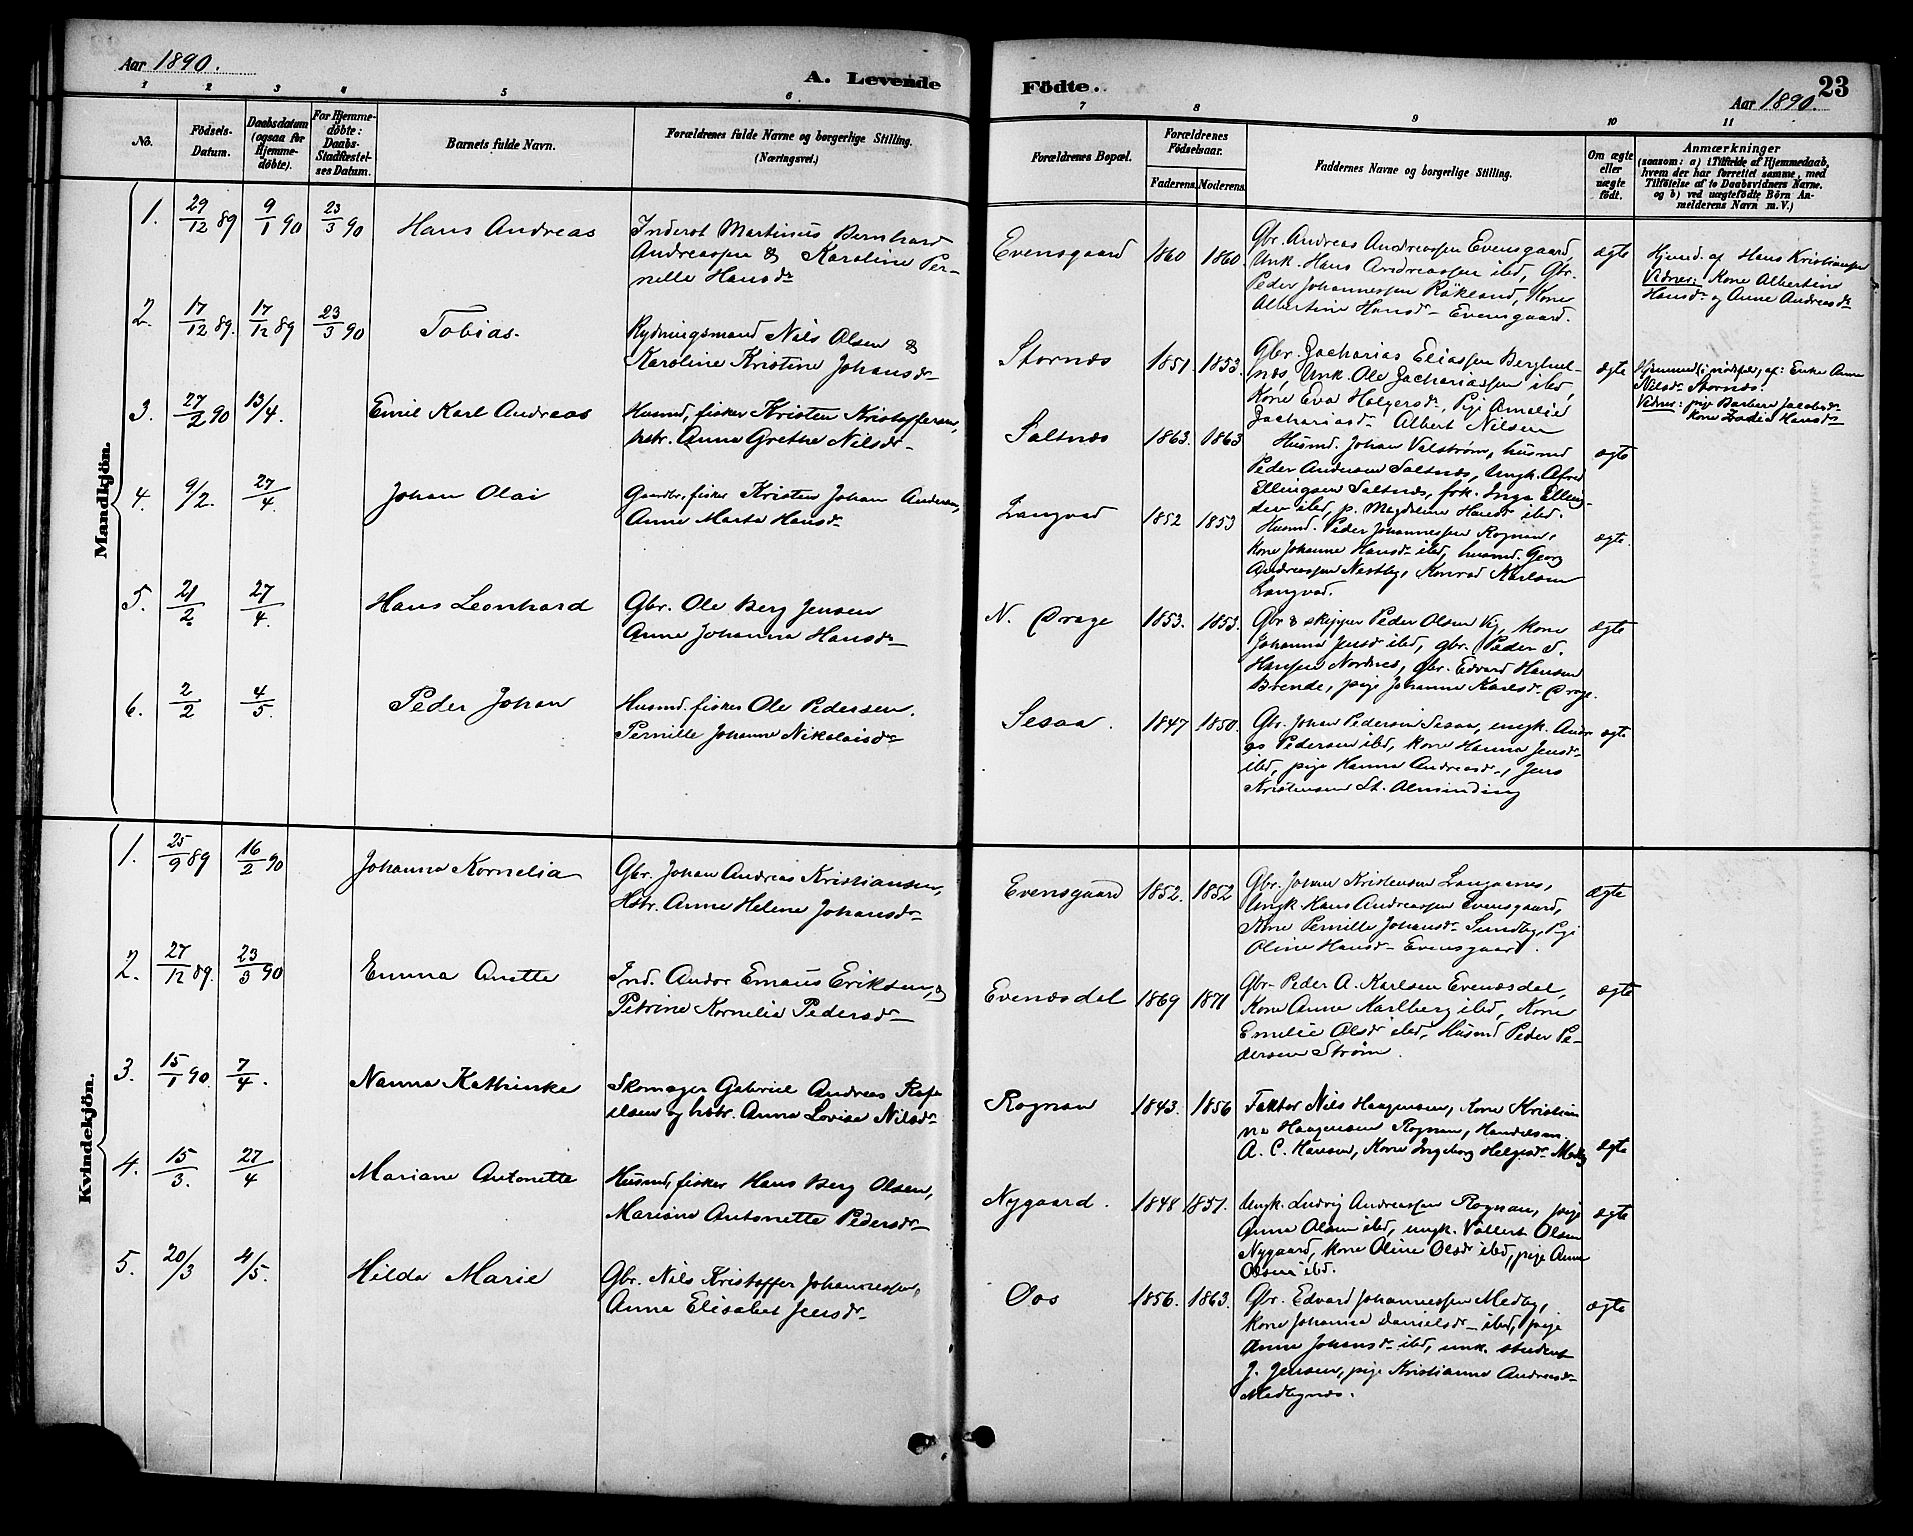 Aar 1890.
A. Levende
1 2 3 4 5 6
No.
Födsels-
Datum.
Daabsdatum
(ogsaa for
Hjemme-
döbte).
For Hjemme-
döbte:
Daabs-
Stadfæstel-
ses Datum.
Barnets fulde Navn.
Forældrenes fulde Navne og borgerlige Stilling.
(Næringsvei.)
Mandkjön.
1. 29/12 89 9/1 90 23/3 90 Hans Andreas
Inderst Martinus Bernhard
Andreassen & Karoline Per-
nille Hansdr
2. 17/12 89. 17/12 89 23/3 90 Tobias.
Rydningsmand Nils Olsen &
Karoline Kristine Johansdr
3. 27/2 90 13/4. Emil Karl Andreas
Husmd, fisker Kristen Kristoffersen,
hstr. Anne Grethe Nilsdr
4. 9/2. 27/4. Johan Olai
Gaardbr, fisker Kristen Johan Andersen,
Anne Marta Hansdr
5. 21/2 27/4. Hans Leonhard
Gbr. Ole Berg Jensen
Anne Johanna Hansdr
6. 2/2 4/5. Peder Johan
Husmd. fisker Ole Pedersen.
Pernille Johanna Nikolaisdr
Kvindekjön.
1. 25/9 89 16/2 90 Johanna Kornelia
Gbr. Johan Andreas Kristiansen,
Hstr. Anne Helene Johansdr
2. 27/12 89. 23/3 90 Emma Anette
Ind. Andor Emaus Eriksen, &
Petrine Kornelia Pedersdr
3. 15/1 90. 7/4. Nanna Kathinka
Skomager Gabriel Andreas Rafa
elsen og hstr. Anna Lovise Nilsdr
4. 15/3. 27/4 Mariane Antonette
Husmd, fisker Hans Berg Olsen,
Mariane Antonette Pedersdr
5. 20/3 4/5. Hilda Marie
Gbr. Nils Kristoffer Johannessen,
Anna Elisabet Jensdr
Födte.
23
Aar 1890.
7 8 9 10 11
Forældrenes Bopæl.
Forældrenes
Födselsaar.
Faderens. Moderens.
Faddernes Navne og borgerlige Stilling.
Om ægte
eller
uægte
födt.
Anmærkninger
(saasom: a) i Tilfælde af Hjemmedaab,
hvem der har forrettet samme, med
Tilföielse af to Daabsvidners Navne.
og b) ved uægtefödte Börn An-
melderens Navn m. V.)
Evensgaard 1860 1860.
Gbr. Andreas Andreassen Evensgaard,
Unk. Hans Andreassen ibd, Gbr.
Peder Johannessen Røkland, Kone
Albertine Hansdr Evensgaard.
ægte
Hjemd. af Hans Kristiansen
Vidner: Kone Albertine
Hansdr og Anne Andreasdr
Stornæs 1851. 1853.
Gbr. Zacharias Eliassen Berghul-
næs, Unk. Ole Zachariassen ibd,
Kone Eva Holgersdr, Pige Amelie
Zachariasdr Albert Nilsen
ægte
Hjemmed (i nødsfald) af: Enke Anne
Nilsdr Stornæs!
Vidner: pige Barbara Jacobsdr
kone Hansdr
Saltnæs 1863. 1863
Husmd. Johan Valstrøm, husmd
Peder Andersen Saltnæs, Ungk. Alfred
Ellingsen Saltnæs, frk. Inga Elling-
sen ibd, p. Magdalena Hansdr ibd.
ægte
Langvad 1852 1853
Husmd. Peder Johannessen Rognan,
kone Johanne Hansdr ibd, husmd. Georg
Andreassen Nestby, Konrad Karlsen
Langvad.
ægte.
N. Drage 1853. 1853.
Gbr & skipper Peder Olsen Vig, kone
Johanna Jensdr ibd, gbr. Peder
Hansen Nordnes, gbr. Edvard Hansen
Brende, pige Johanna Karlsdr Drage.
ægte
Sesaa. 1847 1850.
Gbr. Johan Pedersen Sesaa, ungk. Andr
as Pedersen ibd, kone Hanna Jensdr
ibd, pige Hanna Andreasdr, Jens
Kristensen St. Alminding
ægte
Evensgaard 1852. 1852
Gbr. Johan Kristensen Langaanes,
Ungk. Hans Andreassen Evensgaard,
Kone Pernille Johansdr Sundby, Pige
Oline Hansdr Evensgaard.
ægte
Evenæsdal 1869 1871
Gbr Peder A. Karlsen Evenæsdal,
Kone Anne Karlberg ibd, Kone
Emelie Olsdr ibd, Husmd Peder Pe-
dersen Strøm.
ægte
Rognan 1843. 1856
Faktor Nils Haagensen, kone Kristian
na Haagensen Rognan, Handelsm.
A. C. Hansen, Kone Ingeborg Helgesdr Medby
ægte
Nygaard. 1848 1851.
Ungk. Ludvig Andreassen Rognan, pige
Anna Olsen ibd, ungk. Vollert Olsen
Nygaard, kone Oline Olsdr ibd, pige Anna
Olsen ibd.
ægte
Oos 1856. 1863.
Gbr. Edvard Johannessen Medby,
kone Johanna Danielsdr ibd, pige
Anna Johansdr ibd, unk. student
J. Jensen, pige Kristianna Andreasdr
Medbynæs.
ægte